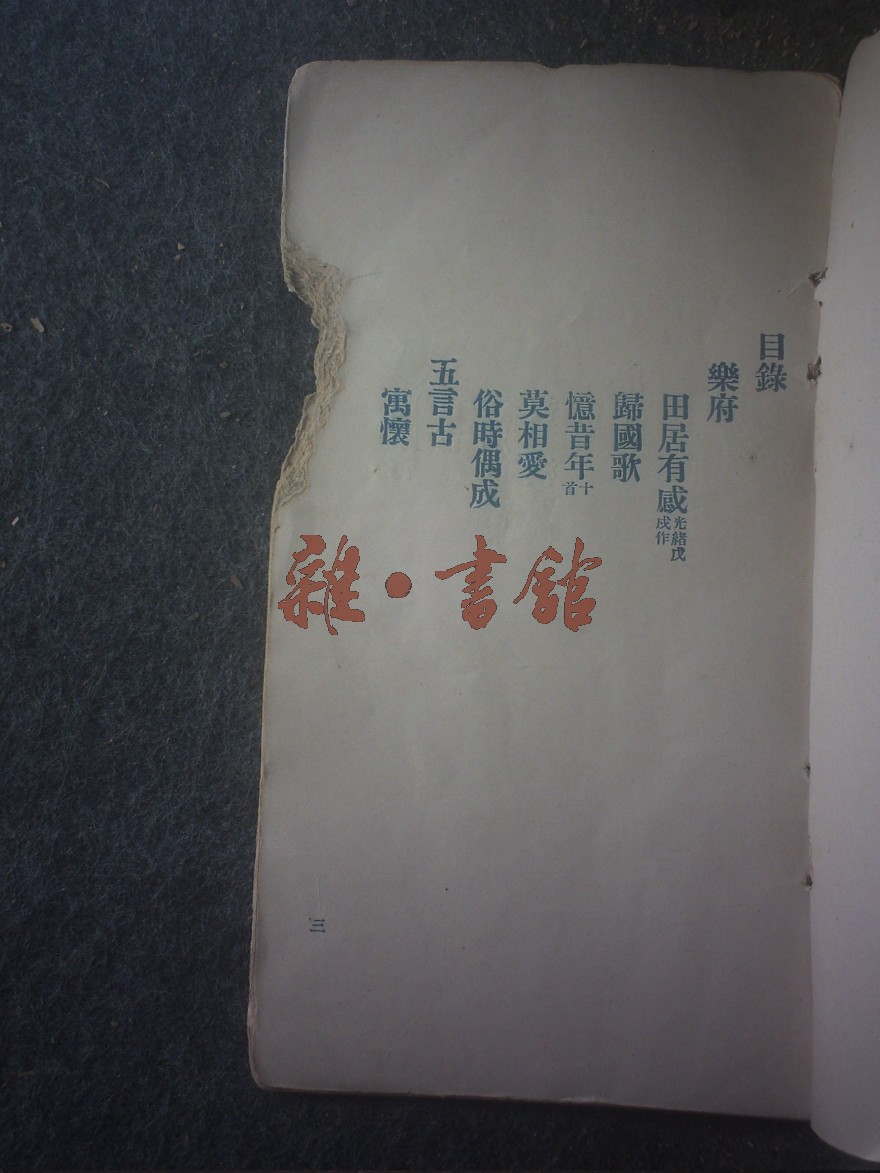 目錄
樂府
田居有感 光緒戊戌作
歸國歌
憶昔年 十首
莫相愛
俗時偶成
五言古
寓懷
三
雜•書館